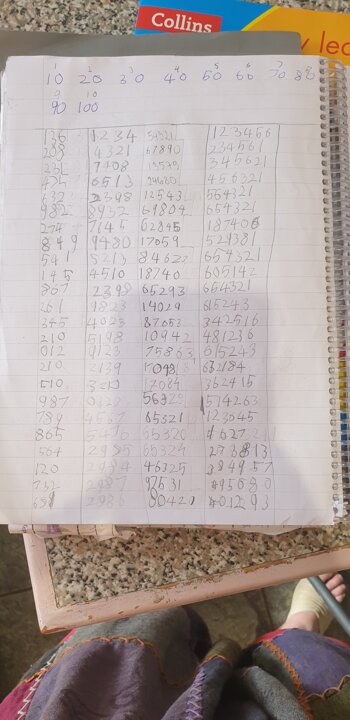 Collins
y lea
1 2 4 5 6 7
10 20 30 40 50 60 70 80
9 10
90 100
136 1234 54321 123456
203 4321 67890 234561
7408 345621
6513 456321
2398 12543 564321
982 8932 69804 654321
274 7145 62845 187405
849 9480 17059 529381
541 5213 84623 654321
145 4510 18740 605142
867 2398 65293 654321
261 9823 14029 615243
345 4023 87653 342516
210 5198 10942 481236
012 9123 75863 615243
210 2139 632184
510 3210 17084 362415
987 56321 514263
789 4567 65321 123645
865 5476 65320
564 2985 65324 273813
120 2984 46325 384957
732 2987 97531 495680
2986 80420 401293